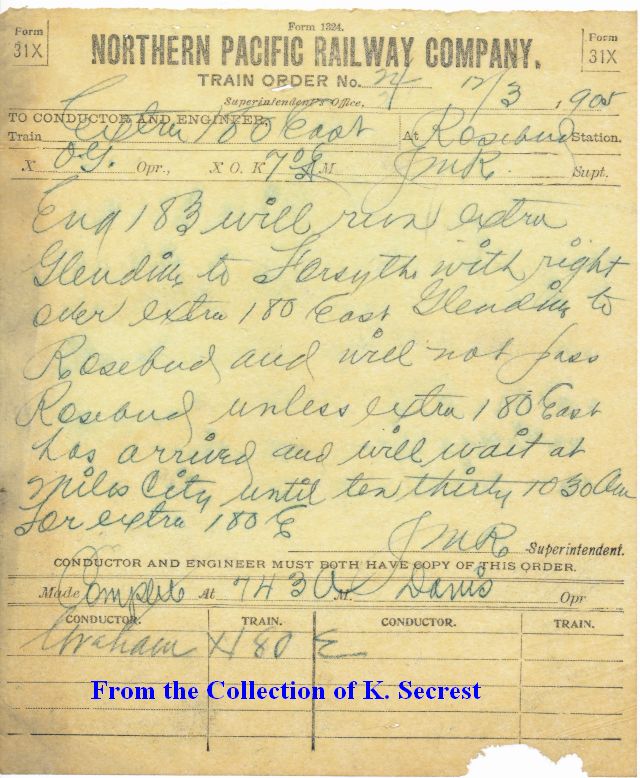 Form 31X
Form 1324.
Form 31X
NORTHERN PACIFIC RAILWAY COMPANY.
TRAIN ORDER No. 24 12/3 1905
Superintendent's Office.
TO CONDUCTOR AND ENGINEER:
Train Extra 180 East At Rosebud Station.
X OG. Opr., X O. K 7 M. JMR Supt.
Eng 183 will run extra
Glendive to Forsythe with right
over extra 180 East Glendive to
Rosebud and will not pass
Rosebud unless extra 180 East
has arrived and will wait at
Miles City until ten thirty 1030 Am
For extra 180 E
JMR Superintendent.
CONDUCTOR AND ENGINEER MUST BOTH HAVE COPY OF THIS ORDER.
Made Complete At 743 A M. Davis Opr
CONDUCTOR. TRAIN. CONDUCTOR. TRAIN.
Graham X180 E
From the Collection of K. Secrest